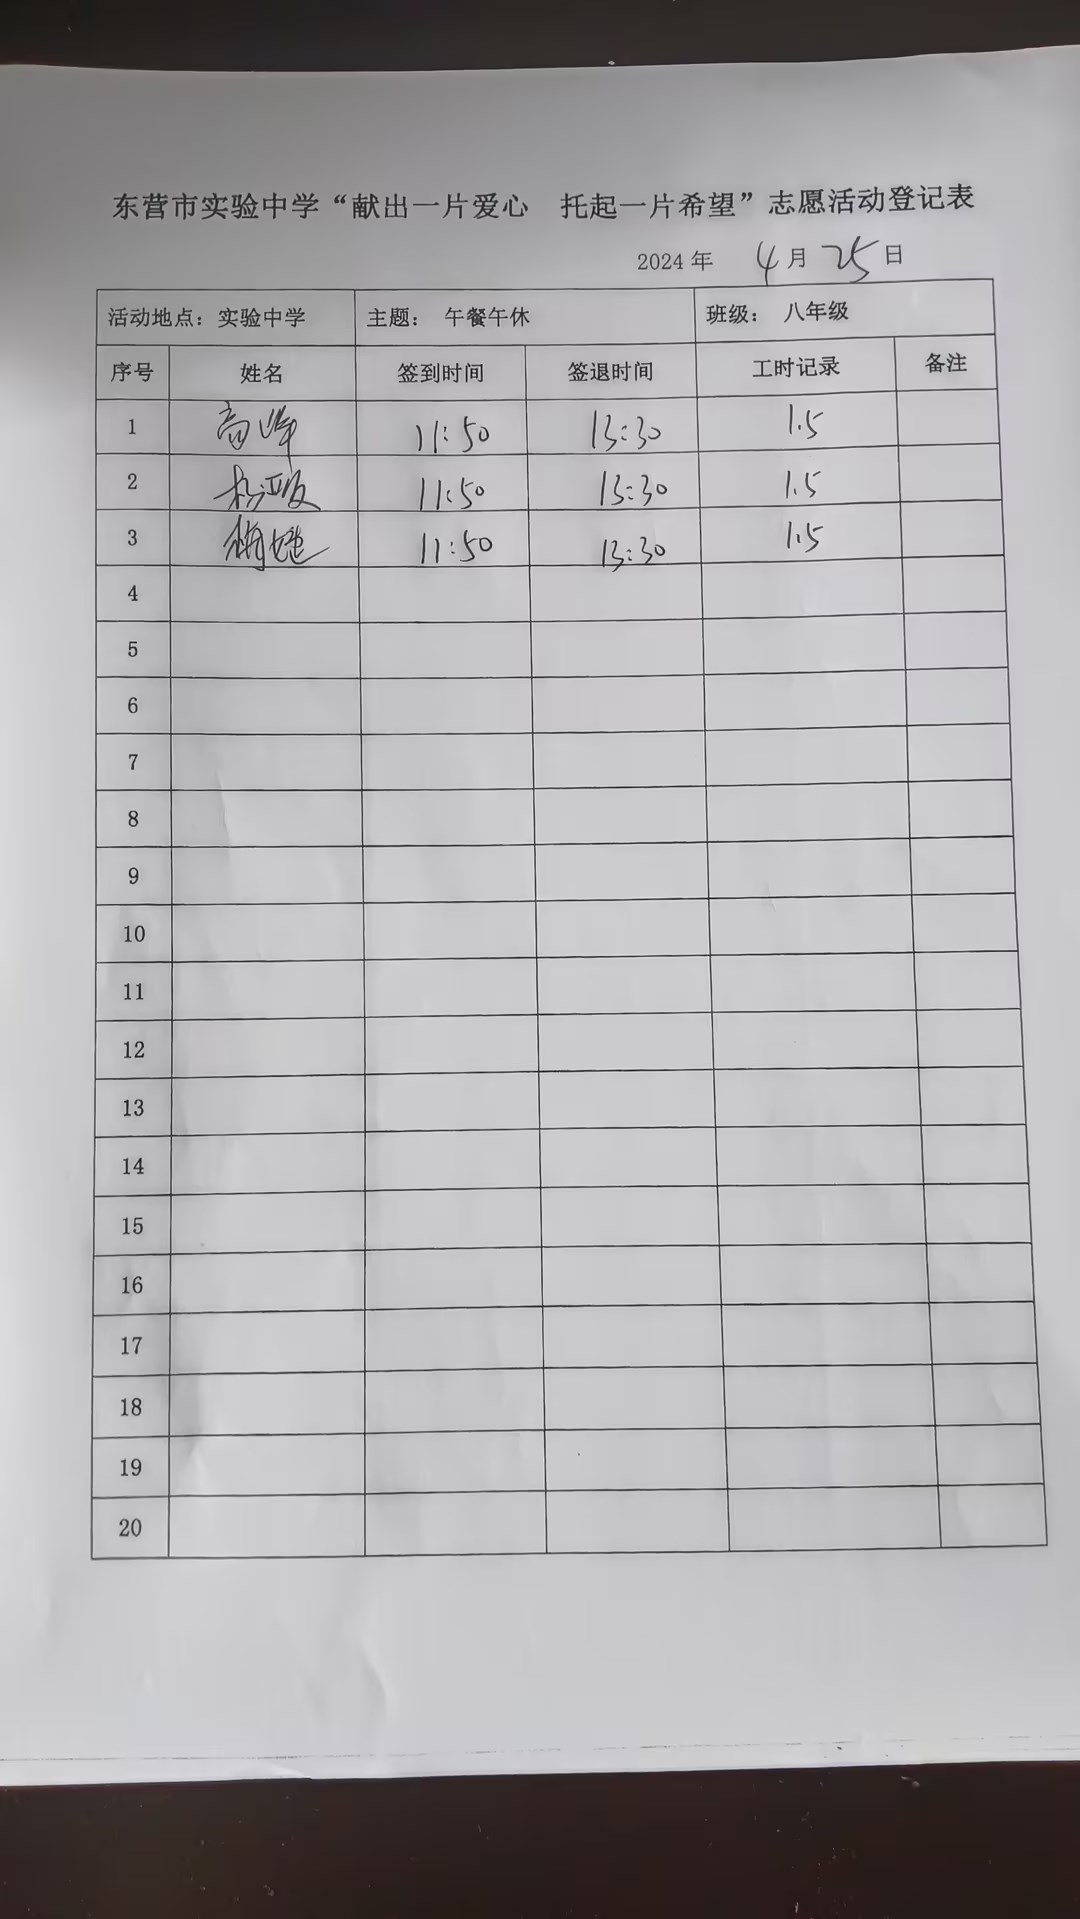 东营市实验中学“献出一片爱心 托起一片希望”志愿活动登记表
2024 年 4 月 25 日
活动地点：实验中学 主题： 午餐午休 班级： 八年级
序号 姓名 签到时间 签退时间 工时记录 备注
1 高峰 11:50 13:30 1.5
2 11:50 13:30 1.5
3 11:50 13:30 1.5
4
5
6
7
8
9
10
11
12
13
14
15
16
17
18
19
20